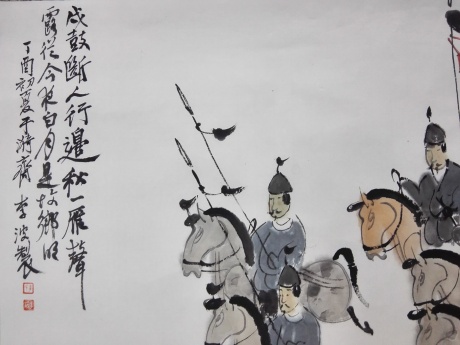 戍鼓斷人行邊秋一雁聲
露從今夜白月是故鄉明
丁酉初夏于
齋李波製